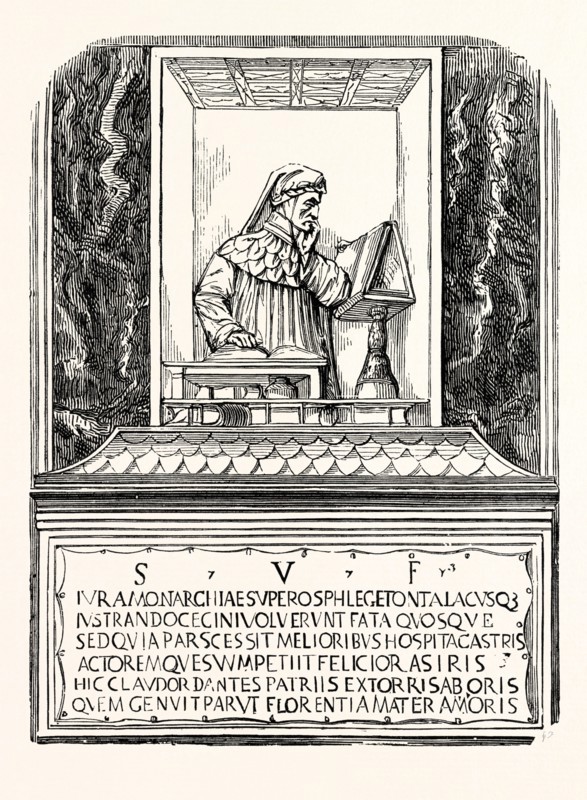 S , V , F
IVRAMONARCHIAESVPEROSPHLEGETONTALACVSQ3
IVSTRANDOCECINIVOLVERVNT FATA QVOSQVE
SEDQVIAPARSCESSIT MELIORIBVSHOSPITACASTRIS
ACTOREMQVESVVMPETIITFELICIORASIRIS
HIC CLAVDOR DANTES PATRIIS EXTORRISABORIS
QVEM GENVITPARVT FLORENTIAMATER AMORIS